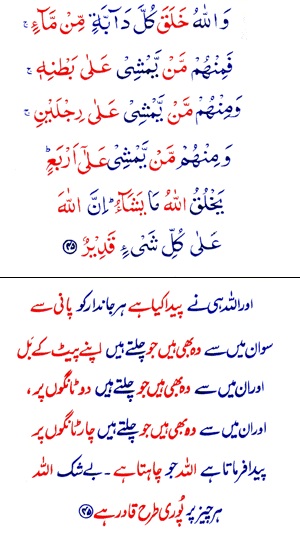 وَاللّٰهُ خَلَقَ كُلَّ دَآبَّةٍ مِّنْ مَّآءٍ ۚ
فَمِنْهُمْ مَّنْ يَّمْشِىْ عَلٰى بَطْنِهٖ ۚ
وَمِنْهُمْ مَّنْ يَّمْشِىْ عَلٰى رِجْلَيْنِ ۚ
وَمِنْهُمْ مَّنْ يَّمْشِىْ عَلٰٓى اَرْبَعٍ ؕ
يَخْلُقُ اللّٰهُ مَا يَشَآءُ ؕ اِنَّ اللّٰهَ
عَلٰى كُلِّ شَىْءٍ قَدِيْرٌ ﴿۴۵﴾
اور اللہ ہی نے پیدا کیا ہے ہر جاندار کو پانی سے
سو ان میں سے وہ بھی ہیں جو چلتے ہیں اپنے پیٹ کے بل
اور ان میں سے وہ بھی ہیں جو چلتے ہیں دو ٹانگوں پر،
اور ان میں سے وہ بھی ہیں جو چلتے ہیں چار ٹانگوں پر
پیدا فرماتا ہے اللہ جو چاہتا ہے۔ بے شک اللہ
ہر چیز پر پُوری طرح قادر ہے ﴿۴۵﴾